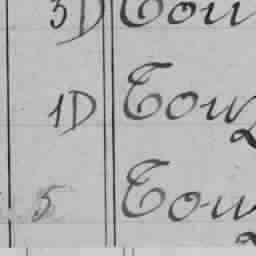 3D Tou
1D Tou
5 Tou